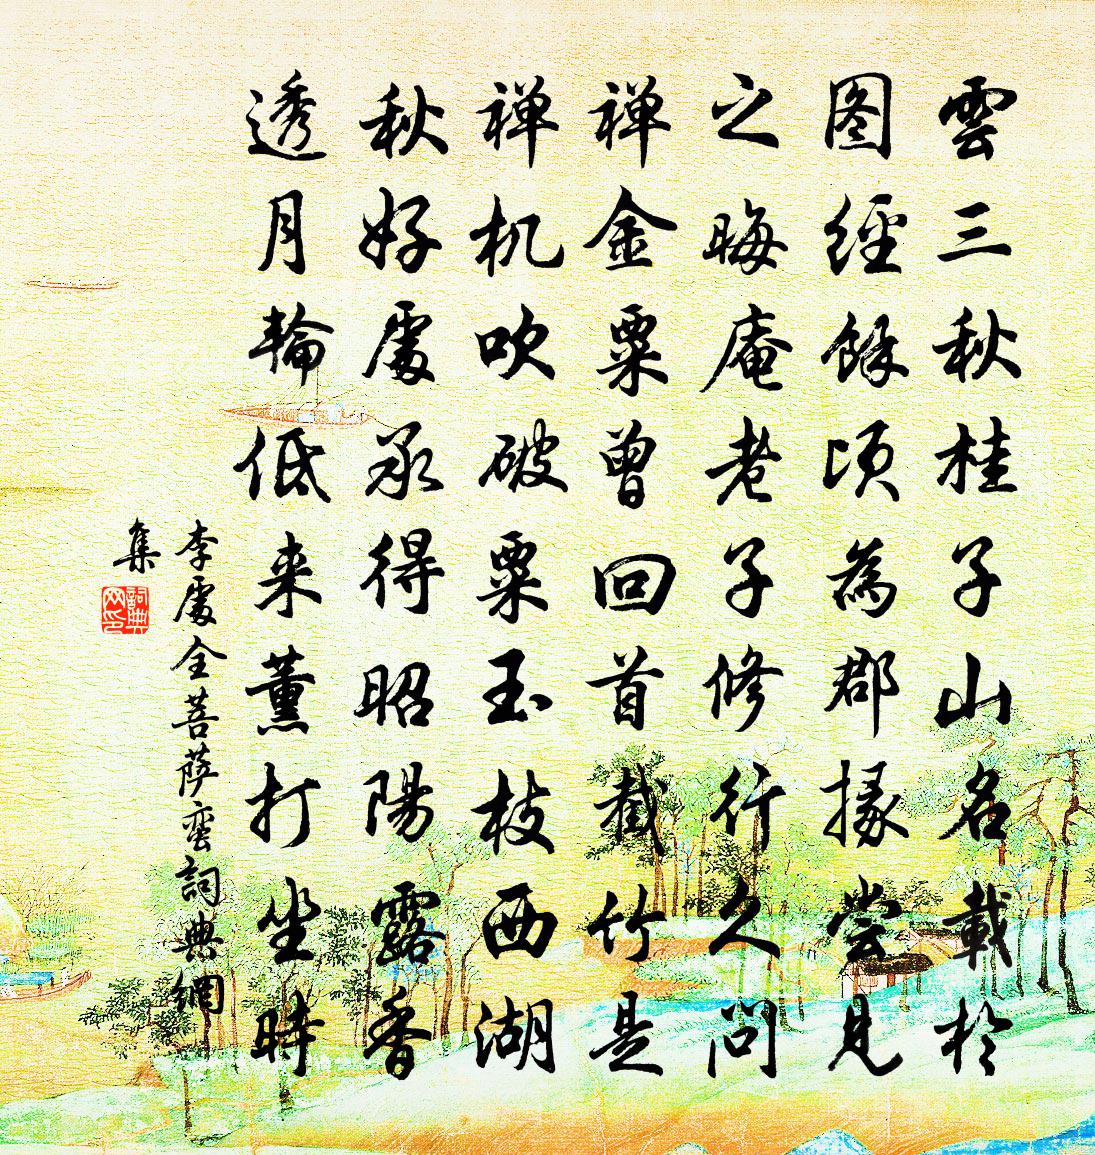 雲三秋桂子山名載於
图經餘頃為郡掾嘗見
之晦庵老子修行久问
禅金粟曾回首截竹是
禅机吹破粟玉枝西湖
秋好處承得昭陽露香
透月輪低来薰打坐時
李處全菩萨蛮詞典網
集
詞典网印